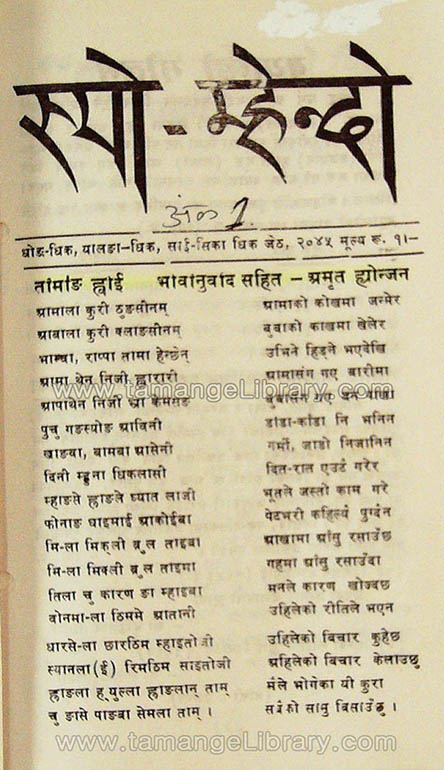 स्यो - म्हेन्दो
अंक 1
धोङ-धिक, यालङा-धिक, साई-सिका धिक जेठ, २०४५ मूल्य रु. १।-
तामाङ ह्वाई भावानुवाद सहित - अमृत ह्योन्जन
आमाला कुरी ठुङसीनम्
आबाला कुरी क्लाङसीनम्
भाम्बा, राप्पा तामा हेन्छेन्
आमा थेन निजी ह्रारारी
आपाथेन निजी
पुचु गङस्योङ आविनी
खाङबा, बामबा आसेनी
दिनी म्हुना धिकलासी
म्हाङसे ह्लाङले घ्यात लाजी
फोनाङ धाइमाई आकोईबा
मि-ला मिक्ली ब्रुल ताइबा
मि-ला मिक्ली ब्रुल ताइमा
तिला चु कारण ङा म्हाइबा
वोनमा-ला ठिममे आतानी
धारसे-ला छारठिम म्हाइतोजी
स्यानला (ई) रिमठिम साइतोजी
ह्लाङला ह् युल्ला ह्लाङलान् ताम्
चु ङासे पाङबा सेमला ताम् ।
आमाको कोखमा जन्मेर
बुबाको काखमा खेलेर
उभिने हिड्ने भएदेखि
आमासंग गए बारीमा
बुबासंग गए बन पाखा
डांडा-कांडा नि भनिन
गर्मी, जाडो निजानिन
दित-रात एउटै गरेर
भूतले जस्तो काम गरे
पेटभरी कहिल्यै पुग्देन
आखामा आँसु रसाउँछ
गहमा आँसु रसाउँदा
मनले कारण खोज्दछ
उहिलेको रीतिले भएन
उहिलेको बिचार कुहेछ
अहिलेको बिचार केलाउछु
मैले भोगेका यी कुरा
सबैको सामु बिसाउँछु ।
www.tamangeLibrary.com
www.tamangeLibrary.com